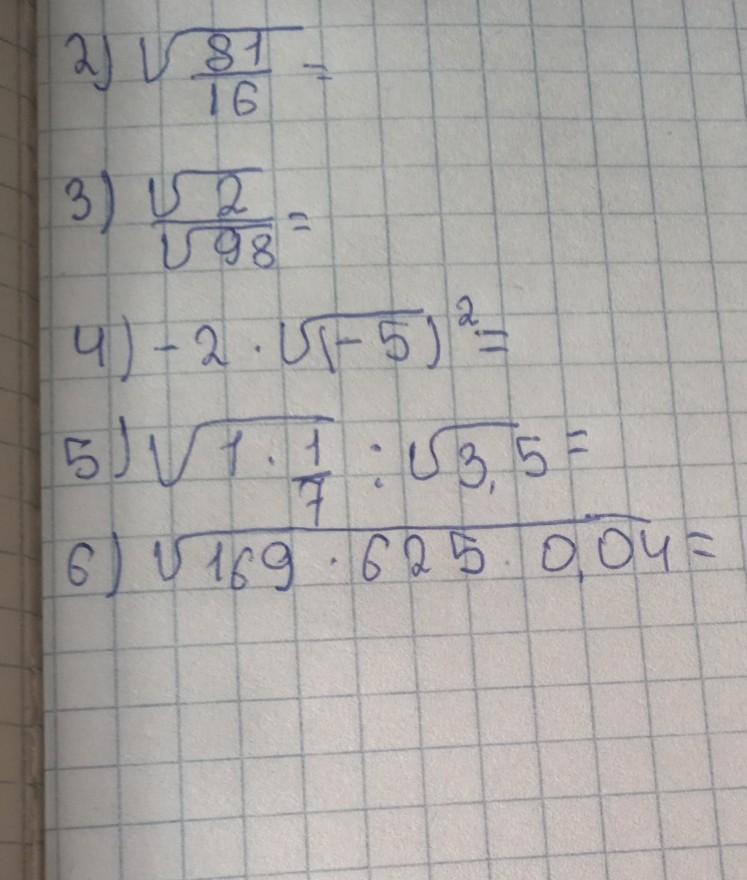 2) √(81/16) =
3) √2/√98 =
4) -2 · √(-5)² =
5) √(1 · 1/7) : √3,5 =
6) √(169 · 625 · 0,04) =